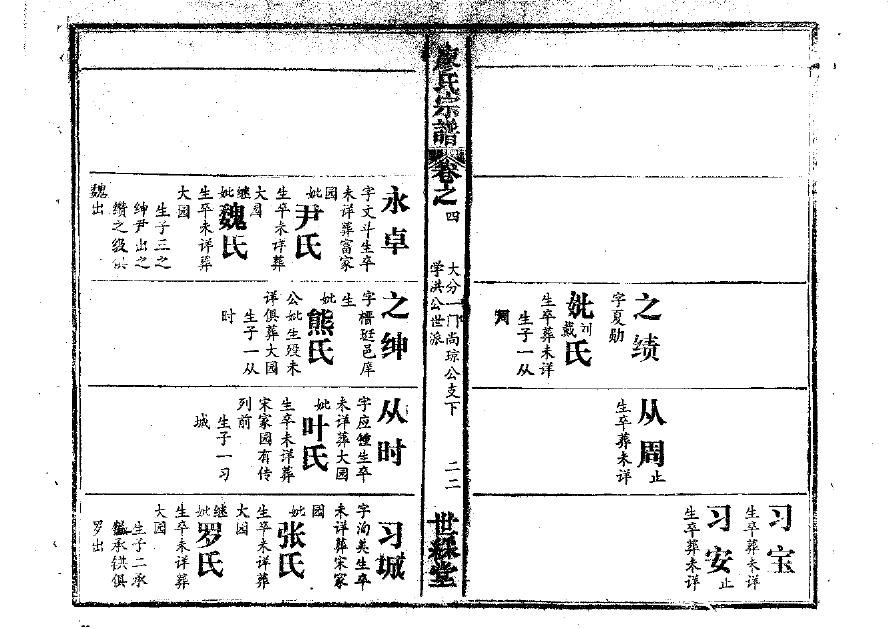 习宝
生卒葬未详
习安止
生卒葬未详
从周止
生卒葬未详
之绩
字夏勋
妣戴氏
生卒葬未详
生子一从
廖氏宗譜
卷之四
大分一门尚琮公支下
学洪公世派
二二
世綵堂
永卓
字文斗生卒
未详葬富家
园
妣尹氏
生卒未详葬
大园
继妣魏氏
生卒未详葬
大园
生子三之
绅尹出之
缵之级俱
魏出
之绅
生
妣熊氏
公妣生殁未
详俱葬大园
生子一从
时
从时
字应锺生卒
未详葬大园
妣叶氏
生卒未详葬
宋家园有传
列前
生子一习
城
习城
字洵美生卒
未详葬宋家
园
妣张氏
生卒未详葬
大园
继妣罗氏
生卒未详葬
大园
生子二承
承铁俱
罗出